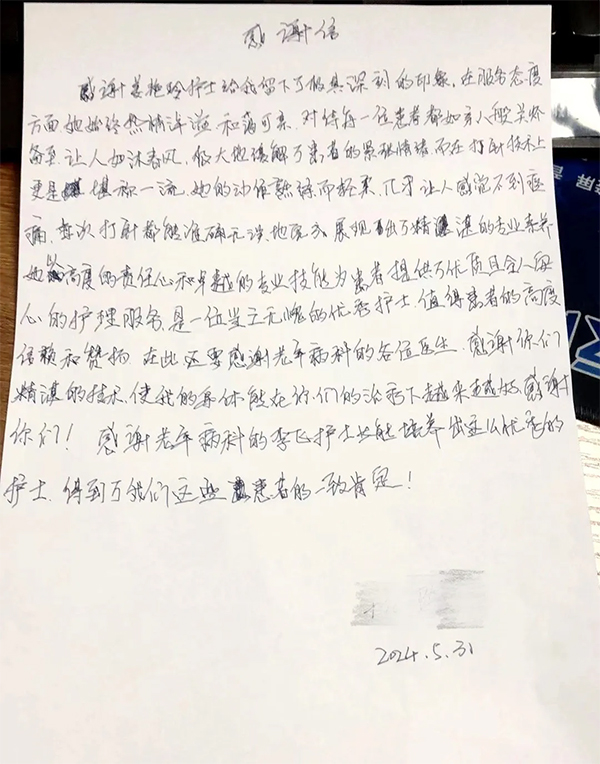 感谢信
感谢姜艳玲护士给我留下了极其深刻的印象，在服务态度
方面她始终热情洋溢和蔼可亲，对待每一位患者都如亲人般关怀
备至，让人如沐春风，极大地缓解了患者的紧张情绪而在打针技术上
更是堪称一流，她的动作熟练而轻柔，几乎让人感觉不到疼
痛，每次打针都能准确无误地完成展现出了精湛的专业素养
她以高度的责任心和卓越的专业技能为患者提供了优质且令人安
心的护理服务，是一位当之无愧的优秀护士，值得患者的高度
信赖和赞扬，在此还要感谢老年病科的各位医生，感谢你们
精湛的技术，使我的身体能在你们的治疗下越来越好，感谢
你们！感谢老年病科的李飞护士长能培养出这么优秀的
护士，得到了我们这些患者的一致肯定！
2024.5.31